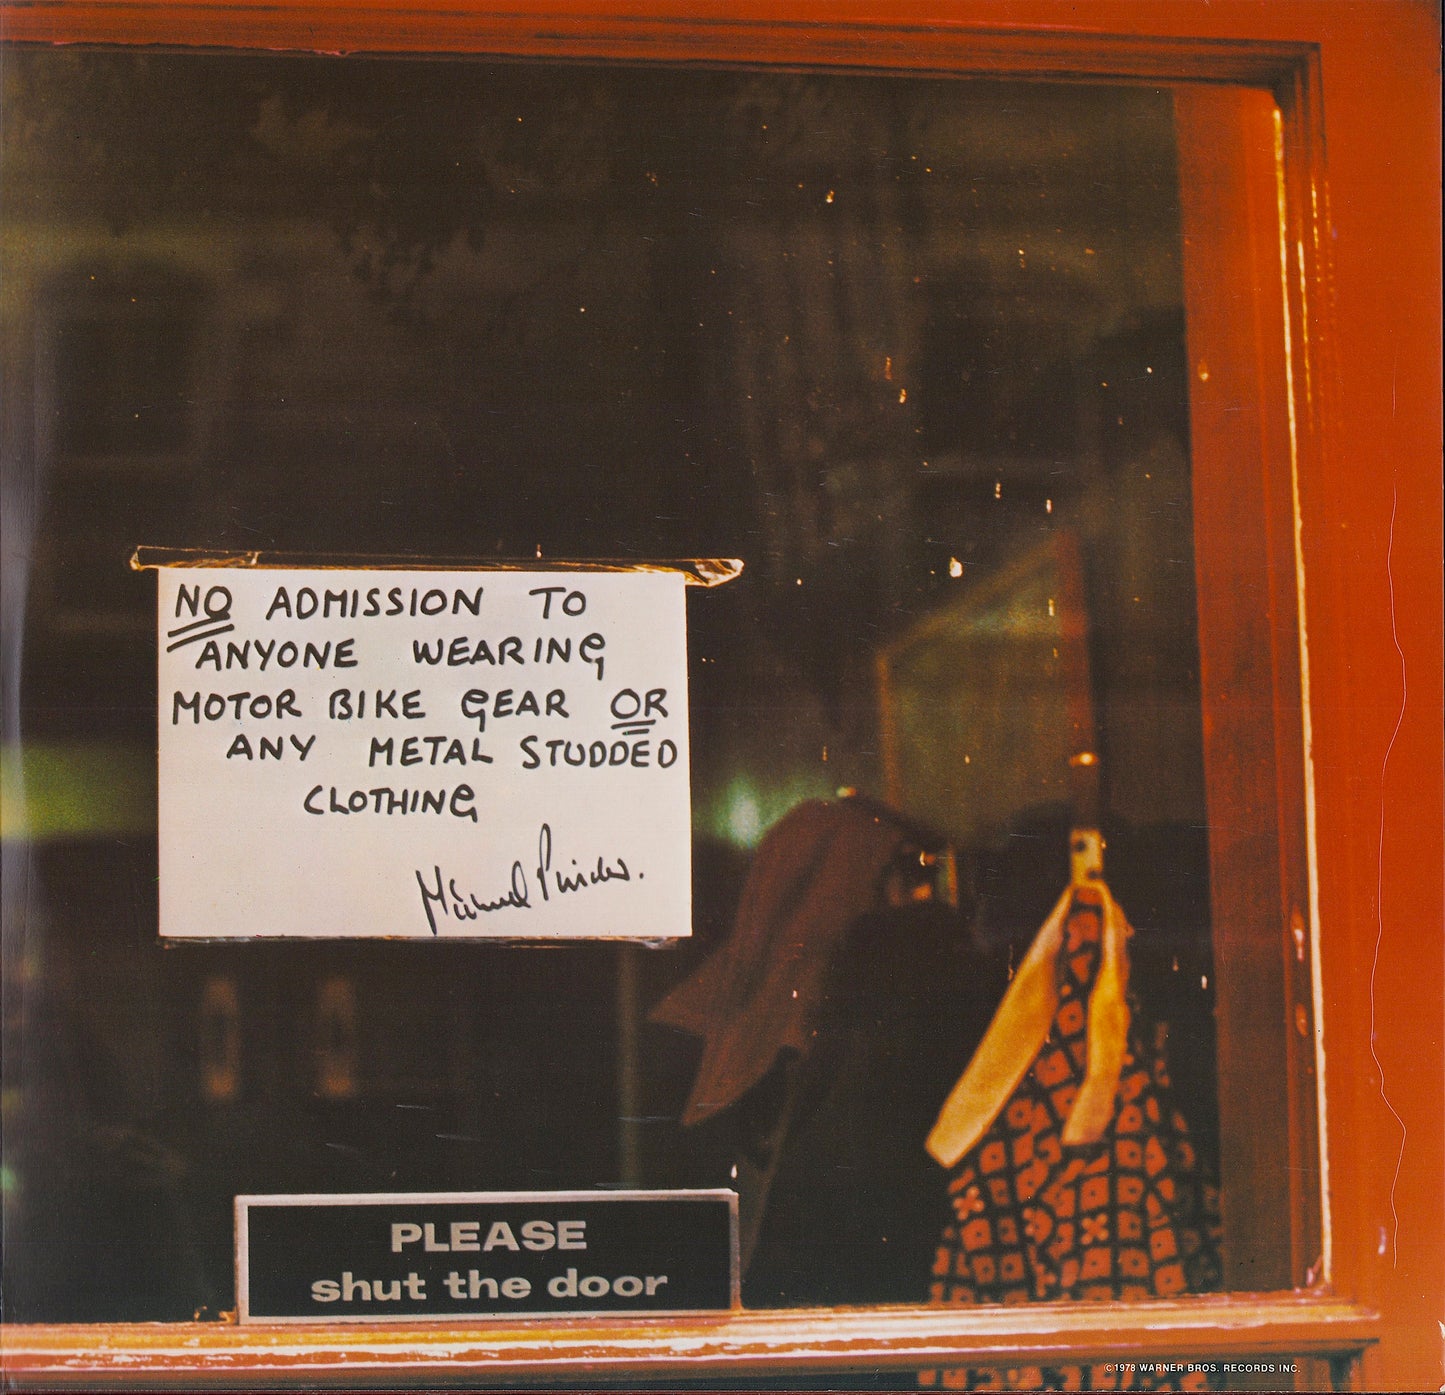 NO ADMISSION TO
ANYONE WEARING
MOTOR BIKE GEAR OR
ANY METAL STUDDED
CLOTHING
Michael Pinder.
PLEASE
shut the door
©1978 WARNER BROS. RECORDS INC.